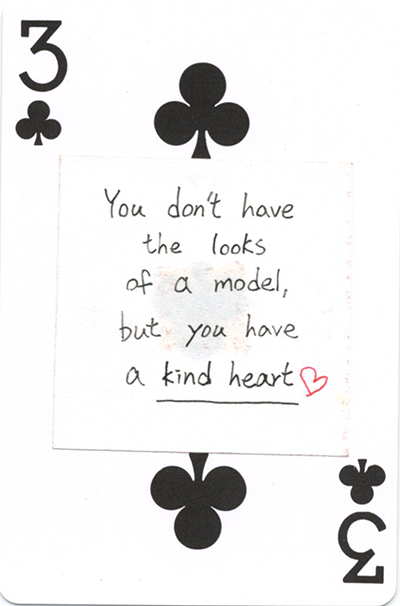 3
You don't have
the looks
of a model,
but you have
a kind heart
3